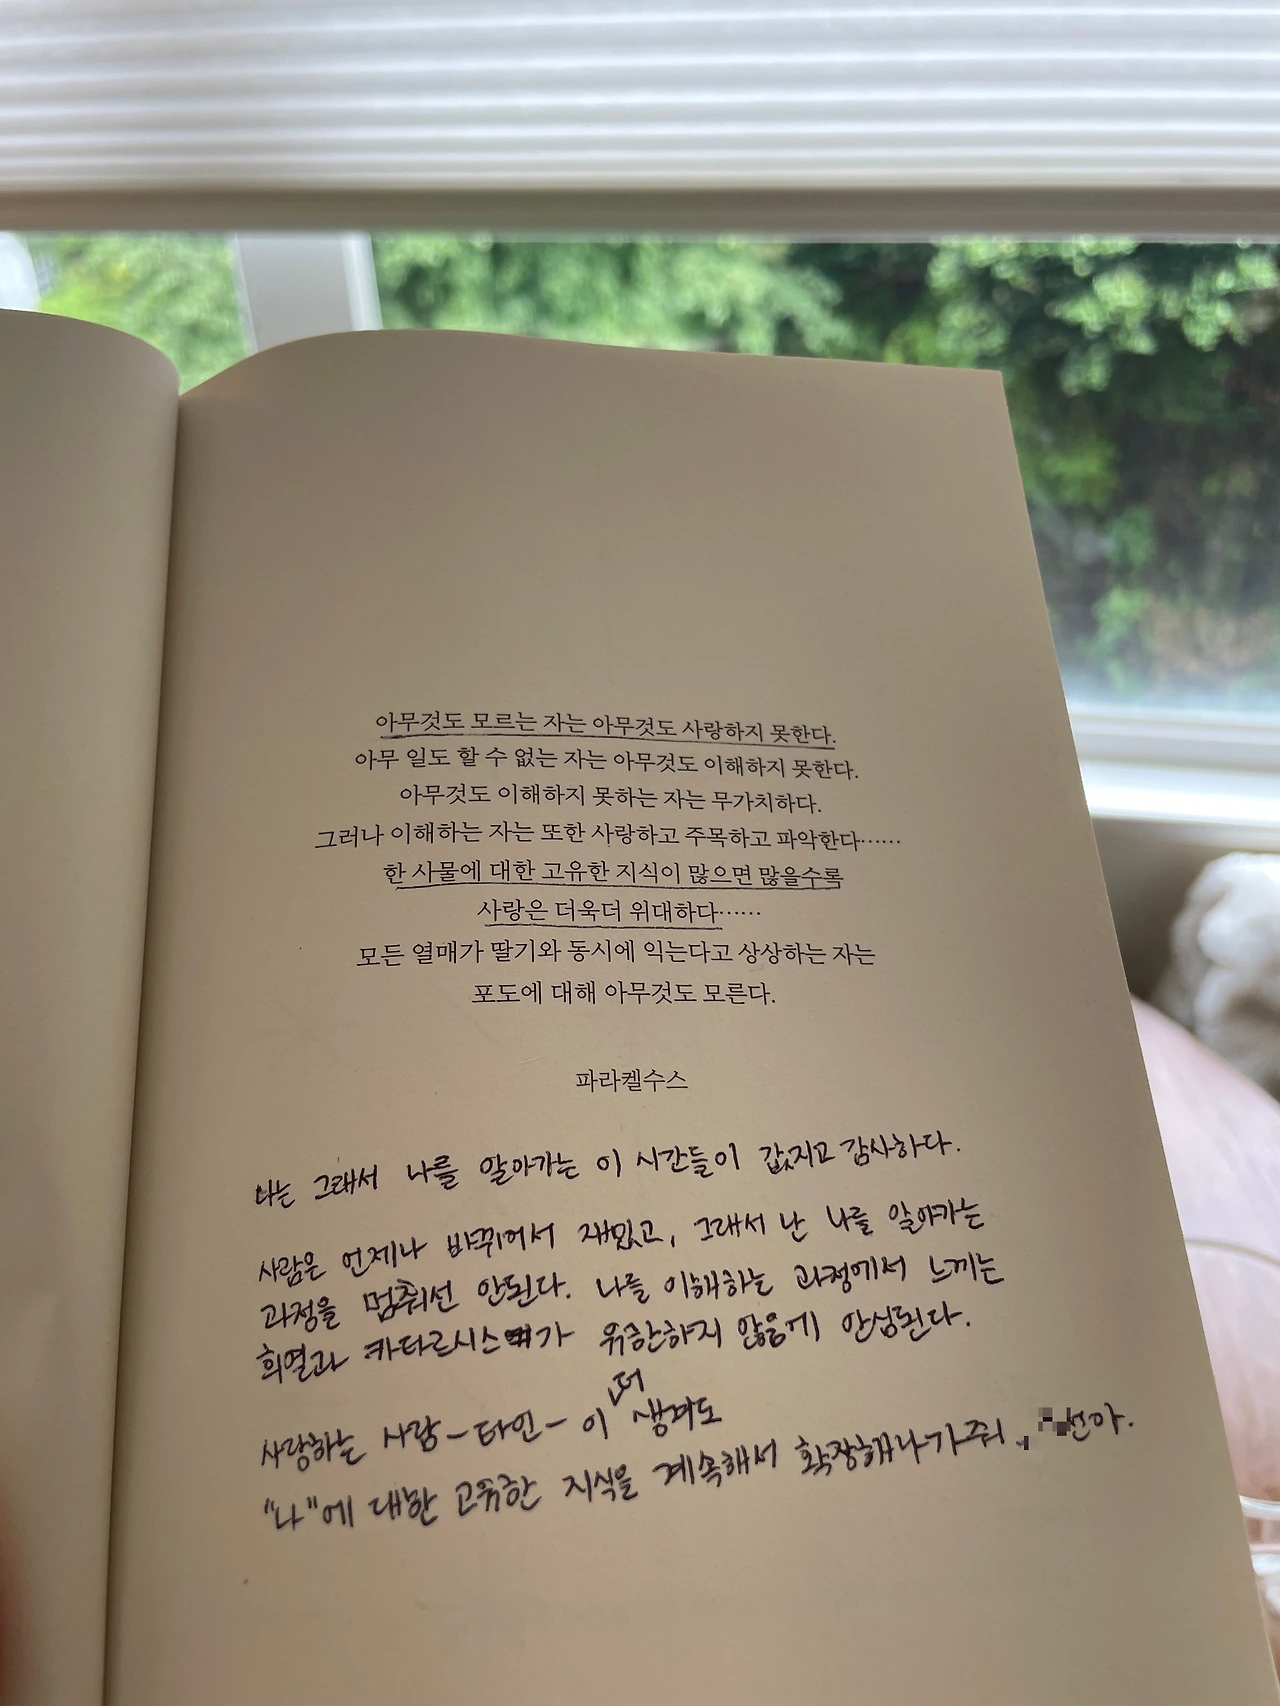 아무것도 모르는 자는 아무것도 사랑하지 못한다.
아무 일도 할 수 없는 자는 아무것도 이해하지 못한다.
아무것도 이해하지 못하는 자는 무가치하다.
그러나 이해하는 자는 또한 사랑하고 주목하고 파악한다……
한 사물에 대한 고유한 지식이 많으면 많을수록
사랑은 더욱더 위대하다……
모든 열매가 딸기와 동시에 익는다고 상상하는 자는
포도에 대해 아무것도 모른다.
파라켈수스
나는 그래서 나를 알아가는 이 시간들이 값지고 감사하다.
사람은 언제나 바뀌어서 재밌고, 그래서 난 나를 알아가는
과정을 멈춰선 안된다. 나를 이해하는 과정에서 느끼는
희열과 카타르시스가 유한하지 않음에 안심된다.
사랑하는 사람-타인-이 더 생겨도
"나"에 대한 고유한 지식을 계속해서 확장해나가줘, 선아.